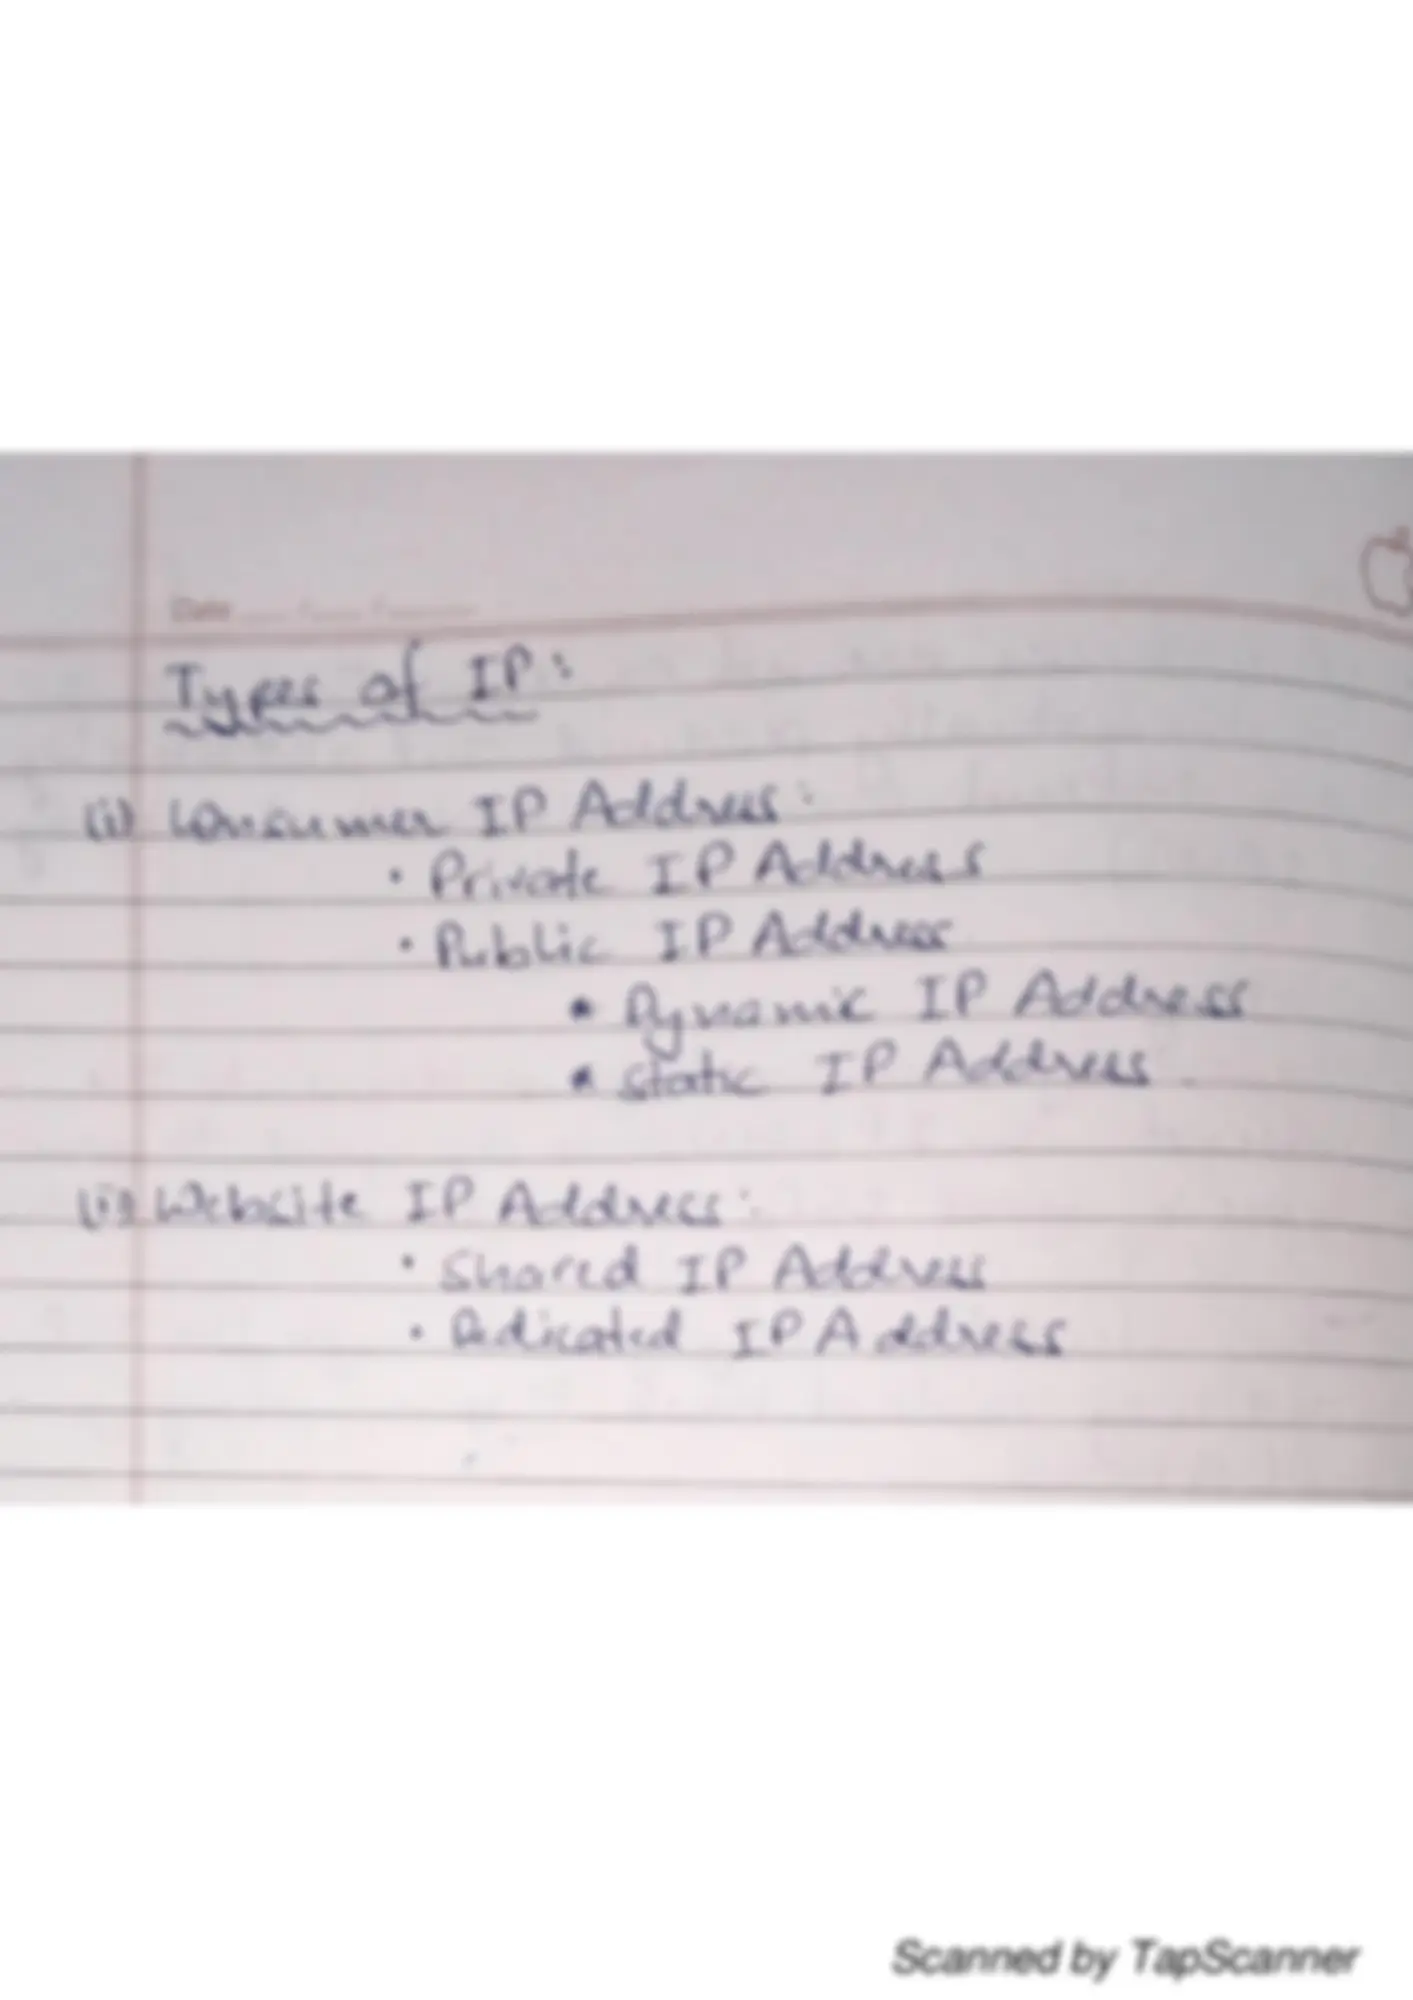 Date
Types of IP:
(i) Consumer IP Address:
• Private IP Address
• Public IP Address
* Dynamic IP Address
* Static IP Address.
(ii) Website IP Address:
• Shared IP Address
• Dedicated IP Address
Scanned by TapScanner